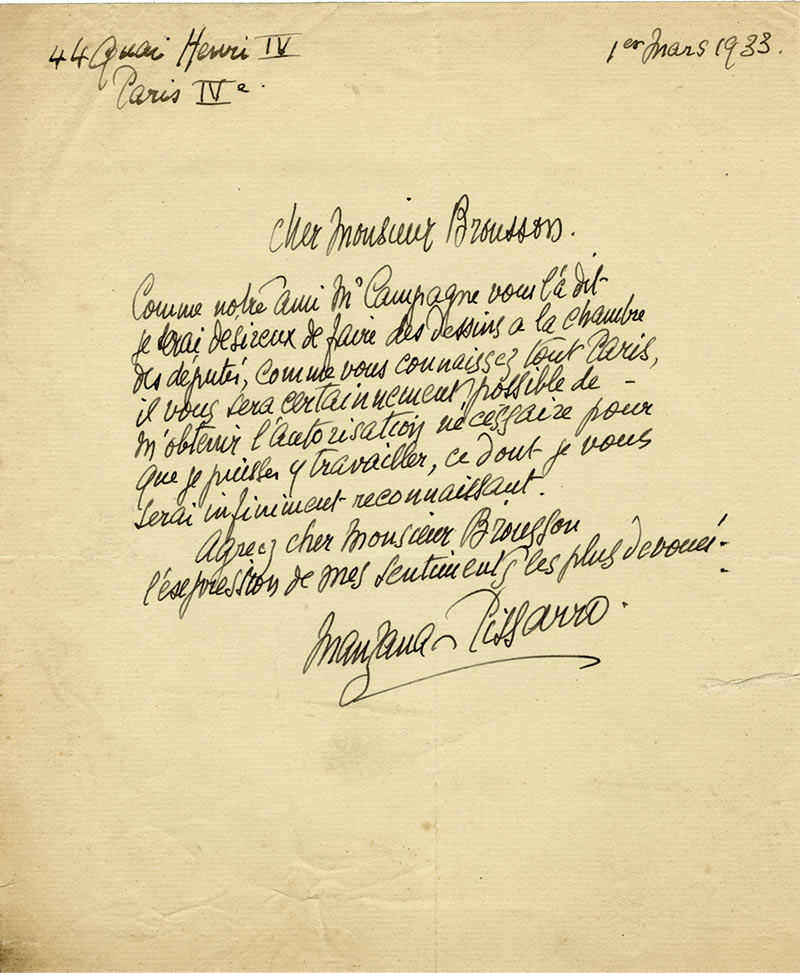 44 Quai Henri IV
1er Mars 1933.
Paris IVe.
Cher Monsieur Brousson.
Comme notre ami Mr Campagne vous l'á dit
je serai desireux de faire des dessins a la chambre
des députés, comme vous connaissez tout Paris,
il vous sera certainnement possible de -
m'obtenir l'autorisation nécessaire pour
que je puisse y travailler, ce dont je vous
serai infiniment reconnaissant.
Agreez cher Monsieur Brousson
l'expression de mes sentiments les plus devoués.
Manzana Pissarro.